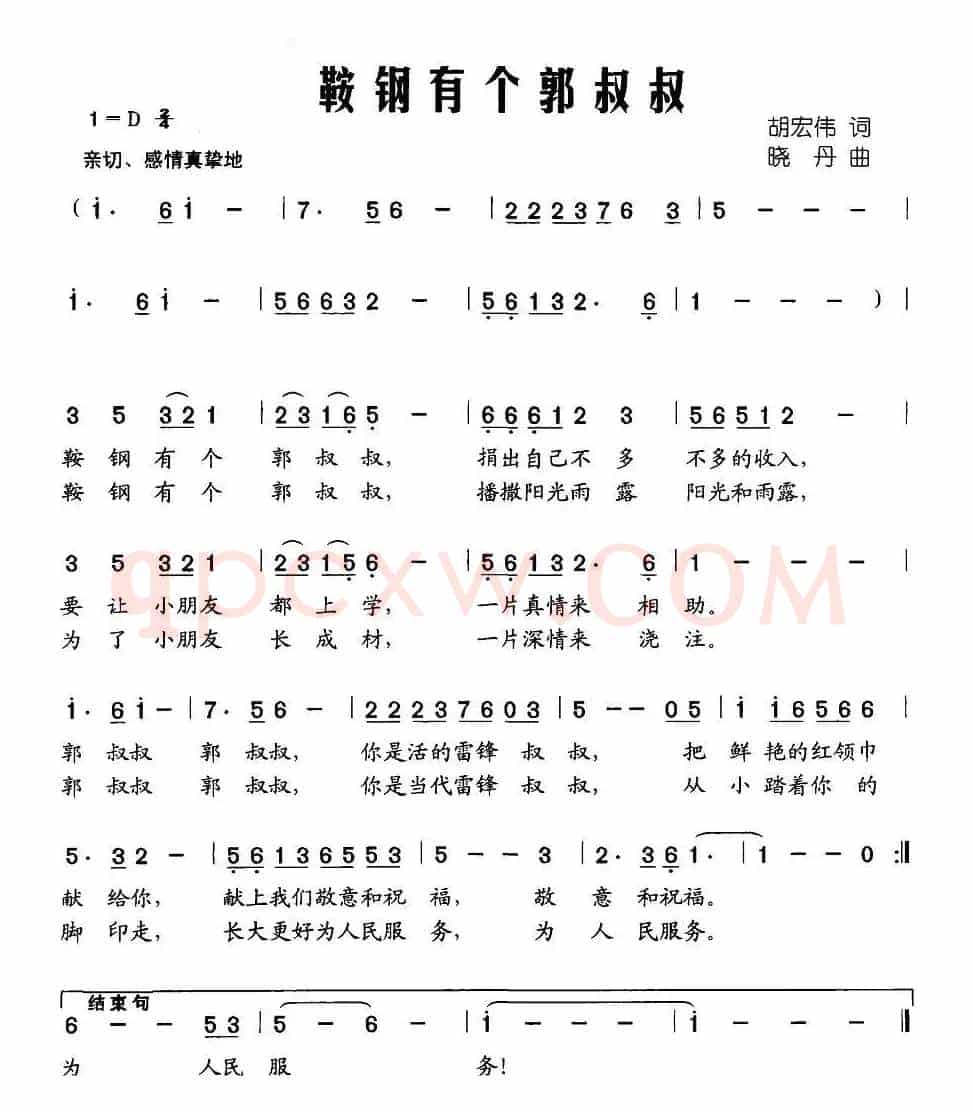 鞍钢有个郭叔叔
1=D 2/4
胡宏伟 词
亲切、感情真挚地
晓 丹 曲
( i· 6 i - | 7· 5 6 - | 2 2 2 3 7 6 3 | 5 - - - |
i· 6 i - | 5 6 6 3 2 - | 5 6 1 3 2· 6 | 1 - - - ) |
3 5 3 2 1 | 2 3 1 6 5 - | 6 6 6 1 2 3 | 5 6 5 1 2 - |
鞍 钢 有 个 郭 叔 叔, 捐出自己不 多 不多的收入,
鞍 钢 有 个 郭 叔 叔, 播撒阳光雨 露 阳光和雨露,
3 5 3 2 1 | 2 3 1 5 6 - | 5 6 1 3 2· 6 | 1 - - - |
要 让 小朋友 都 上 学, 一片真情来 相 助。
为 了 小朋友 长 成 材, 一片深情来 浇 注。
qpcxw.COM
i· 6 i - | 7· 5 6 - | 2 2 2 3 7 6 0 3 | 5 - - 0 5 | i i 6 5 6 6 |
郭 叔叔 郭 叔叔, 你是活的雷锋 叔 叔, 把 鲜 艳的红领巾
郭 叔叔 郭 叔叔, 你是当代雷锋 叔 叔, 从 小 踏着你 的
5· 3 2 - | 5 6 1 3 6 5 5 3 | 5 - - 3 | 2· 3 6 1· | 1 - - 0 :‖
献 给你, 献上我们敬意和祝 福, 敬 意 和祝福。
脚 印走, 长大更好为人民服 务, 为 人 民服务。
结束句
6 - - 5 3 | 5 - 6 - | i - - - | i - - - ‖
为 人民 服 务!